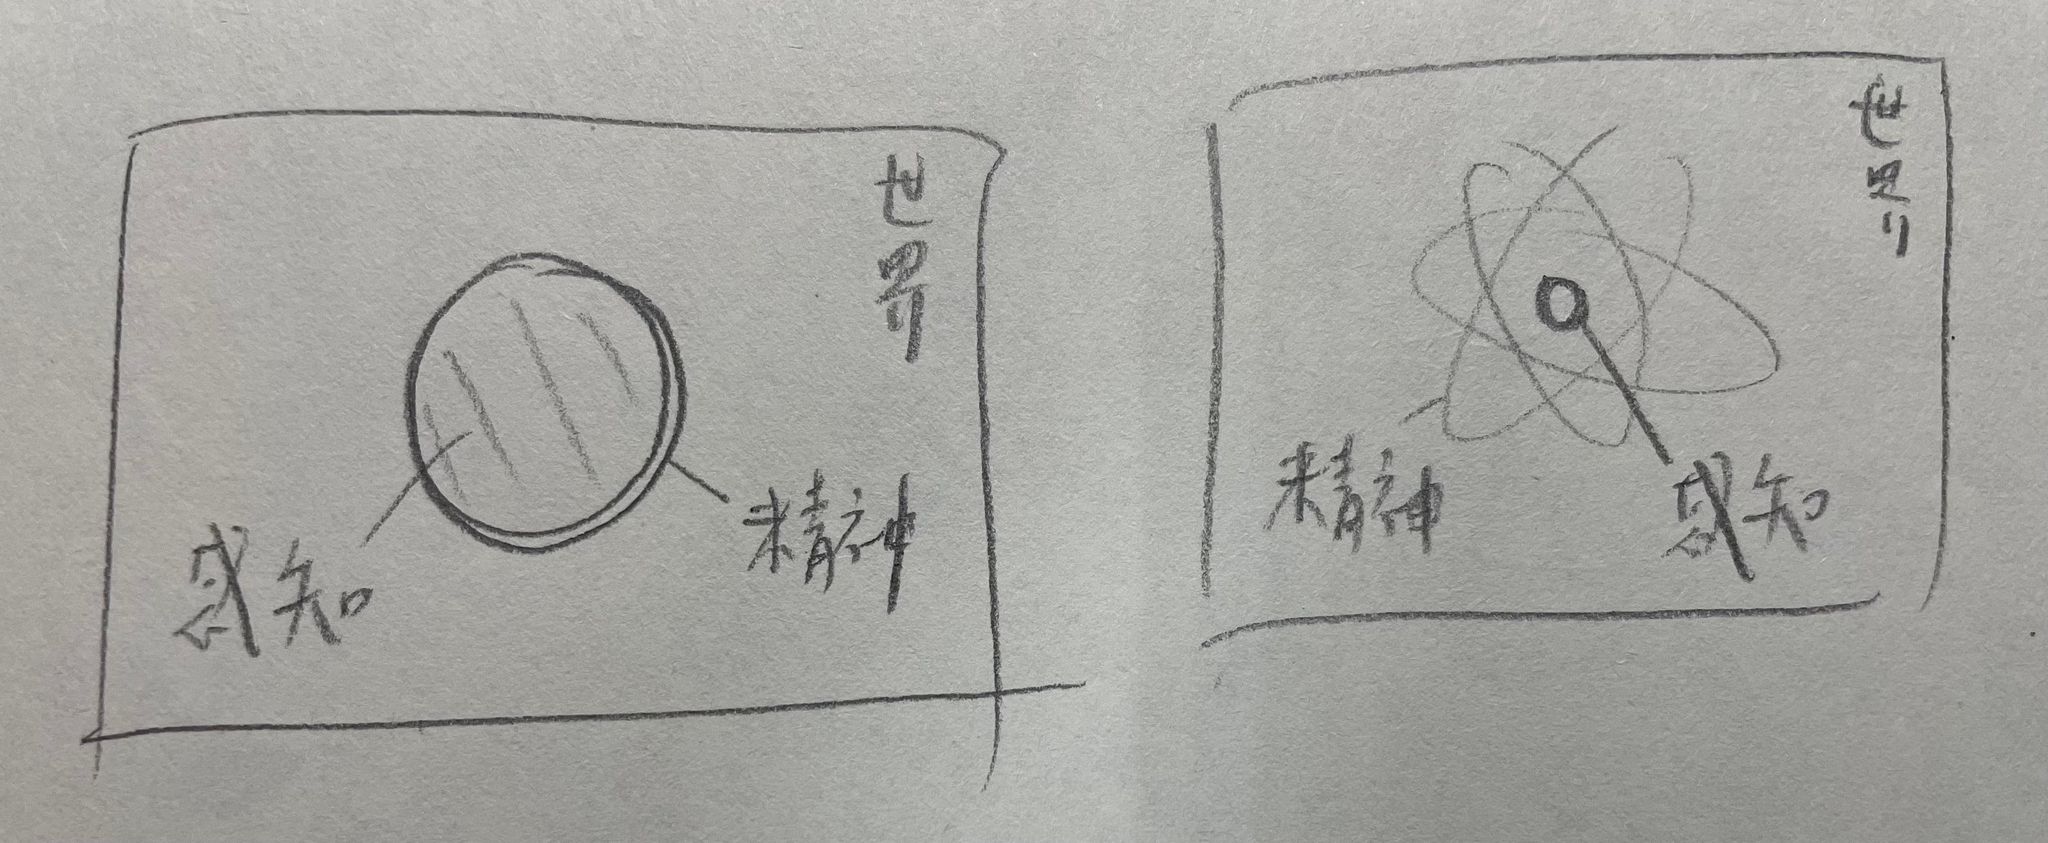 世界
感知
精神
世界
精神
感知